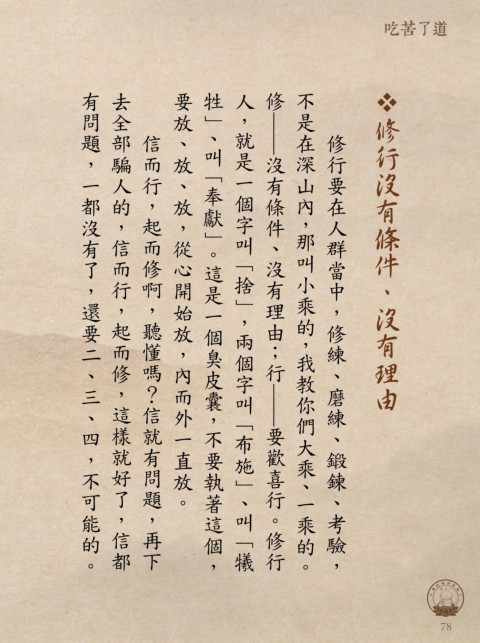 吃苦了道
❖修行沒有條件、沒有理由
修行要在人群當中，修練、磨練、鍛鍊、考驗，
不是在深山內，那叫小乘的，我教你們大乘、一乘的。
修——沒有條件、沒有理由；行——要歡喜行。修行
人，就是一個字叫「捨」，兩個字叫「布施」、叫「犧
牲」、叫「奉獻」。這是一個臭皮囊，不要執著這個，
要放、放、放，從心開始放，內而外一直放。
信而行，起而修啊，聽懂嗎？信就有問題，再下
去全部騙人的，信而行，起而修，這樣就好了，信都
有問題，一都沒有了，還要二、三、四，不可能的。
78